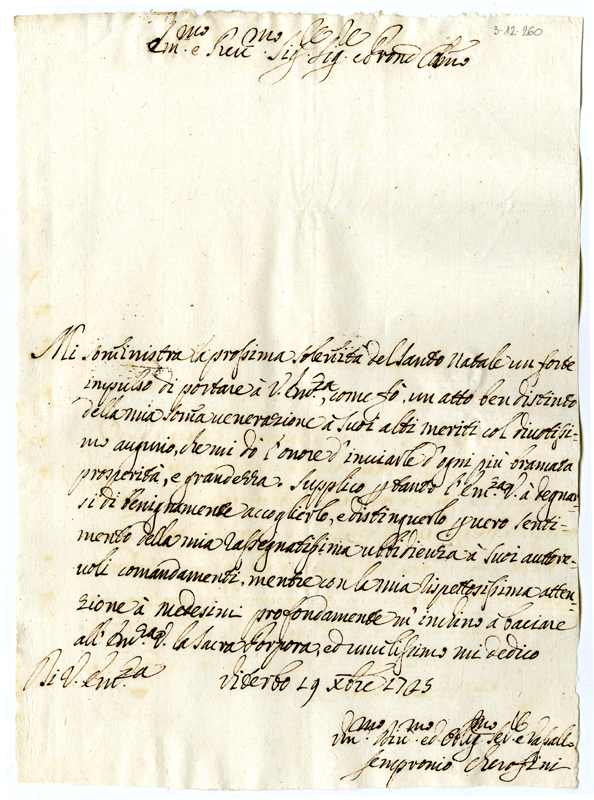 3-12-260
Em.mo e Reu.mo Sig.re Sig.re e Pron Col.mo
Mi somministra la prossima solennità del santo Natale un forte
impulso di portare à V. Em.za, come fò, un atto ben distinto
della mia som̃a venerazione à Suoi alti meriti col diuotissi-
mo augurio, che mi dò l'onore d'inuiarle d'ogni più bramata
prosperità, e grandezza. Supplico ptanto l'Em.za V. à degnar-
si di benignamente accoglierlo, e distinguerlo p uero senti-
mento della mia rassegnatissima ubbidienza à Suoi autore-
uoli comandamenti, mentre con la mia rispettosissima atten-
zione à medesimi profondamente m'inchino à baciare
all'Em.za V. la sacra Porpora, ed umilissimo mi dedico
Di V. Em.za Viterbo 19 Xbre 1725
Um.mo Diu.mo ed Oblig.mo Ser.e e Vassallo
Sempronio